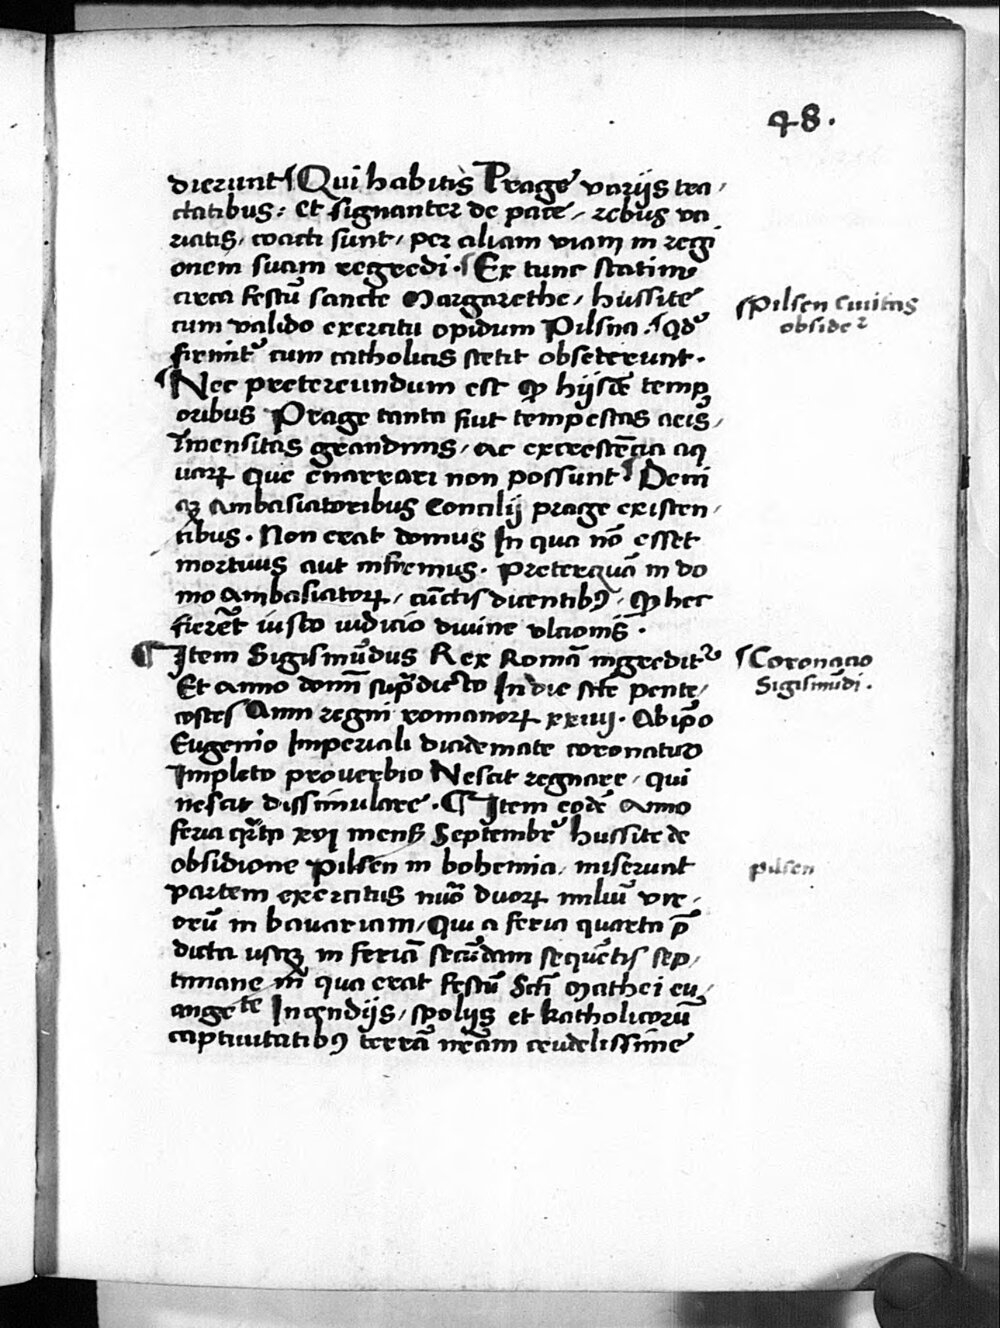 48.
dierunt ¶ Qui habitis Prage varijs tra,
ctatibus: et signanter de pace, rebus va
riatis, coacti sunt, per aliam viam in regi
onem suam regredi. ¶ Ex tunc statim
circa festū sancte Margarethe, hussite
cum valido exercitu opidum Pilsna.
firmit᷑ cum catholicis stetit obsederunt.
¶ Nec pretereundum est ꝙ hijsdē temp
oribus Prage tanta fuit tempestas aeris,
Īmensitas grandinis, ac excrescēcia aq
uarꝝ Que enarrari non possunt ¶ Deni
qꝫ Ambasiatoribus Concilij prage existen,
tibus. Non erat domus In qua nō esset
mortuus aut infirmus. preterquā in do
mo Ambasiatorꝝ, cūctis dicentibꝰ, ꝙ hec
fierēt iusto iudicio divine vlcionis.
¶ Item Sigismūdus Rex Romā ingreditᷣ
Et anno domī sup̄dicto In die scē pente,
costes Anni regni romanorꝝ xxiiij. Ab ip̄o
Eugenio Imperiali diademate coronatus
Impleto proverbio Nescit regnare, qui
nescit dissimulare. ¶ Item eodē Anno
feria qrta xvj mensis Septembr᷑ hussite de
obsidione pilsen in bohemia, miserunt
partem exercitus nūo duorꝝ miliū vir,
orū in bavariam, Qui a feria quarta p̄
dicta usqꝫ in feriā secūdam sequētis sep,
timane in qua erat festū Scī Mathei eu,
angete Incendijs, spolijs et katholicorū
captivitatibꝰ terrā nr̄am crudelissime
¶ Pilsen Civitas
obsidet᷑
¶ Coronacio
Sigismūdi.
pilsen